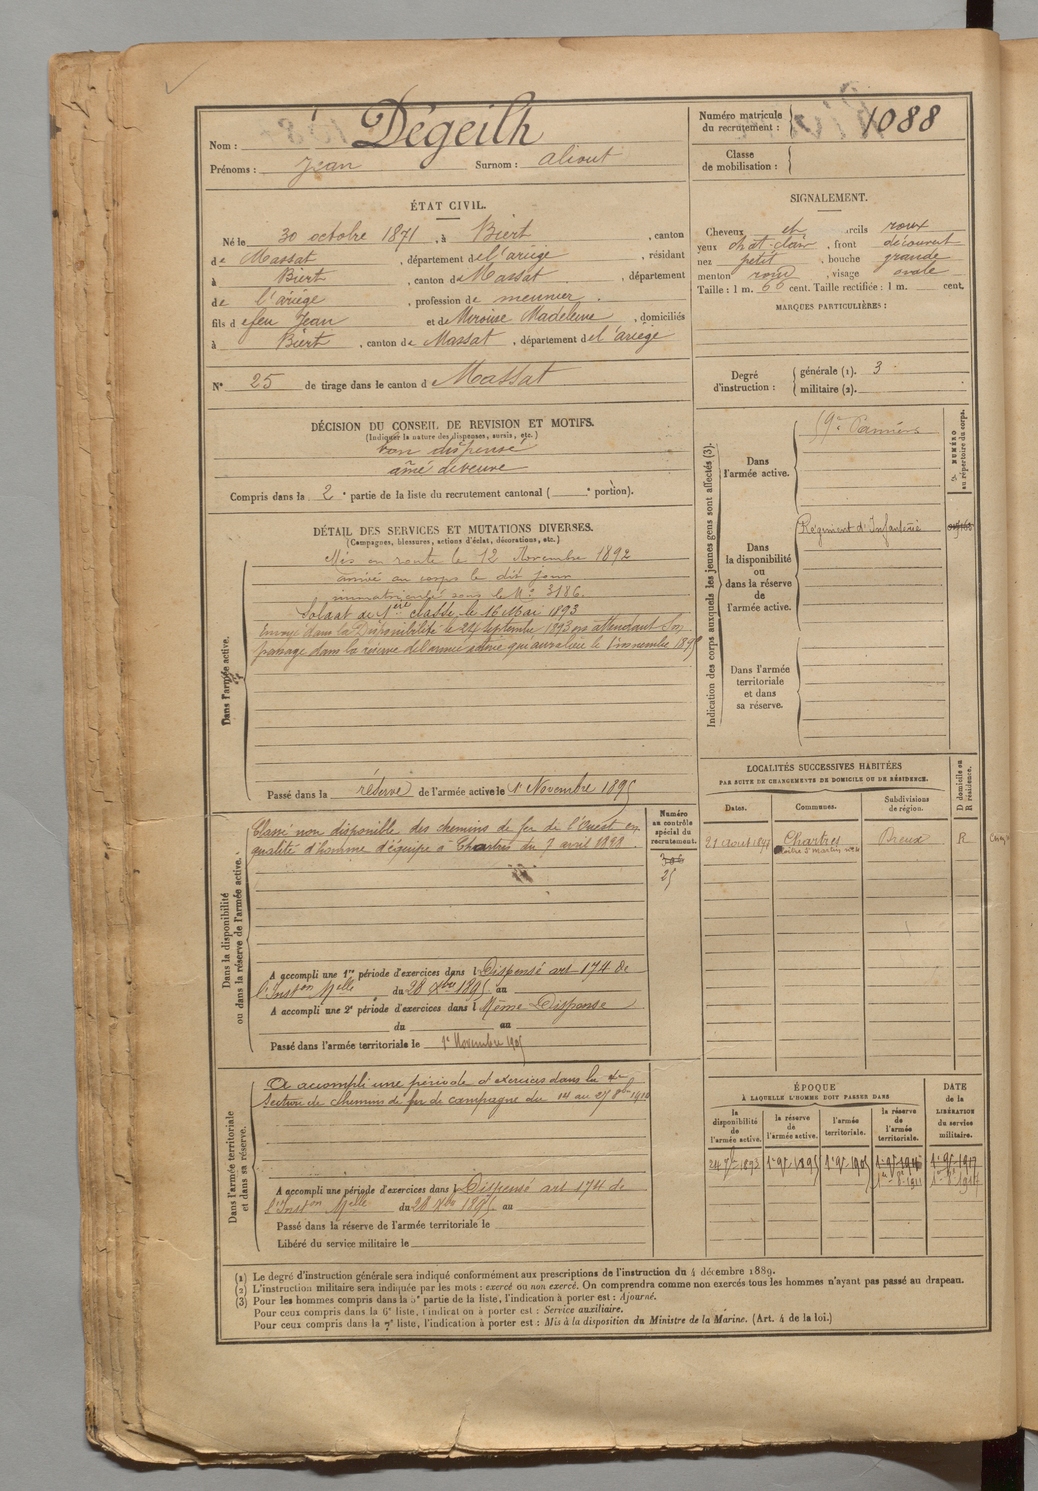 Nom : Dégeilh
Prénoms : Jean Surnom : aliout
Numéro matricule du recrutement : 1088
Classe de mobilisation :
ÉTAT CIVIL.
Né le 30 octobre 1871, à Biert, canton
de Massat, département de l'ariège, résidant
à Biert, canton de Massat, département
de l'ariège, profession de meunier.
fils de feu Jean et de Mirouse Madeleine, domiciliés
à Biert, canton de Massat, département de l'ariège
N° 25 de tirage dans le canton de Massat
SIGNALEMENT.
Cheveux et sourcils roux
yeux chat. clair, front découvert
nez petit, bouche grande
menton rond, visage ovale
Taille : 1 m. 66 cent. Taille rectifiée : 1 m. cent.
MARQUES PARTICULIÈRES :
Degré d'instruction : générale (1). 3
militaire (2).
DÉCISION DU CONSEIL DE REVISION ET MOTIFS.
(Indiquer la nature des dispenses, sursis, etc.)
bon dispensé
aîné de veuve
Compris dans la 2e partie de la liste du recrutement cantonal ( e portion).
DÉTAIL DES SERVICES ET MUTATIONS DIVERSES.
(Campagnes, blessures, actions d'éclat, décorations, etc.)
Dans l'armée active.
Mis en route le 12 Novembre 1892
arrivé au corps le dit jour
immatriculé sous le N° 3186.
Soldat de 1ère classe le 16 Mai 1893
Envoyé dans la Disponibilité le 24 Septembre 1893 en attendant son
passage dans la réserve de l'armée active qui aura lieu le 1er novembre 1895
Passé dans la réserve de l'armée active le 1r Novembre 1895
Indication des corps auxquels les jeunes gens sont affectés (3).
NUMÉRO au répertoire du corps.
Dans l'armée active.
59e Pamiers
Dans la disponibilité ou dans la réserve de l'armée active.
Régiment d'Infanterie
Dans l'armée territoriale et dans sa réserve.
Dans la disponibilité ou dans la réserve de l'armée active.
Classé non disponible des chemins de fer de l'Ouest en
qualité d'homme d'équipe à Chartres du 7 avril
Numéro au contrôle spécial du recrutement.
25
A accompli une 1re période d'exercices dans l Dispensé art 174 de
l'Inston Melle du 28 Xbre 1895 au
A accompli une 2e période d'exercices dans l Même Dispense
du au
Passé dans l'armée territoriale le 1r Novembre 1905
Dans l'armée territoriale et dans sa réserve.
A accompli une période d'exercices dans la 4e
Section de chemins de fer de campagne du 14 au 27 1910
A accompli une période d'exercices dans l Dispensé art 174 de
l'Inston Melle du 28 Xbre 1895 au
Passé dans la réserve de l'armée territoriale le
Libéré du service militaire le
LOCALITÉS SUCCESSIVES HABITÉES
PAR SUITE DE CHANGEMENTS DE DOMICILE OU DE RÉSIDENCE.
Dates. Communes. Subdivisions de région. D domicile ou R résidence.
21 Août 1897 Chartres Dreux R
ÉPOQUE
À LAQUELLE L'HOMME DOIT PASSER DANS
DATE de la LIBÉRATION du service militaire.
la disponibilité de l'armée active. la réserve de l'armée active. l'armée territoriale. la réserve de l'armée territoriale.
24 7bre 1893 1r 9bre 1895 1r 9bre 1905 1r 9bre 1911 1r 9bre 1917
1er 8bre 1911 1er 8bre 1917
(1) Le degré d'instruction générale sera indiqué conformément aux prescriptions de l'instruction du 4 décembre 1889.
(2) L'instruction militaire sera indiquée par les mots : exercé ou non exercé. On comprendra comme non exercés tous les hommes n'ayant pas passé au drapeau.
(3) Pour les hommes compris dans la 5e partie de la liste, l'indication à porter est : Ajourné.
Pour ceux compris dans la 6e liste, l'indication à porter est : Service auxiliaire.
Pour ceux compris dans la 7e liste, l'indication à porter est : Mis à la disposition du Ministre de la Marine. (Art. 4 de la loi.)